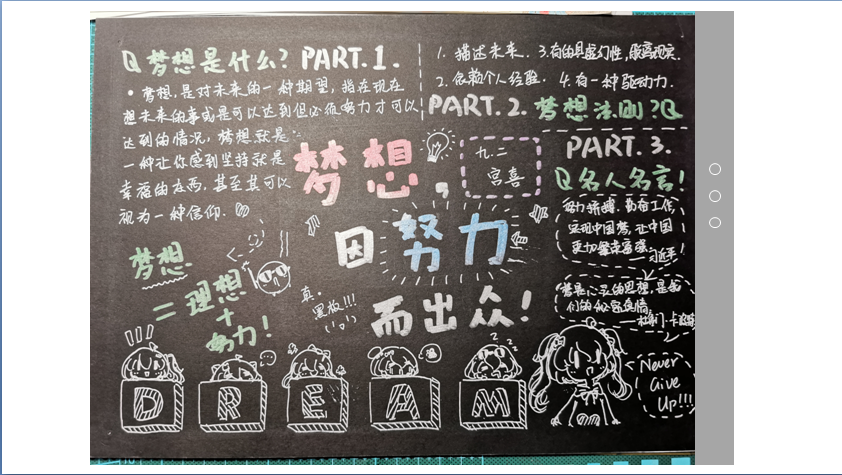 Q 梦想是什么? PART.1.
· 梦想,是对未来的一种期望,指在现在
想未来的事或是可以达到但必须努力才可以
达到的情况,梦想就是
一种让你感到坚持就是
幸福的东西,甚至其可以
视为一种信仰.
1. 描述未来. 3.有的具虚幻性,脱离现实.
2. 依赖个人经验. 4. 有一种驱动力.
PART.2. 梦想法则?Q
PART.3.
Q名人名言!
努力拼搏,勤奋工作,
实现中国梦,让中国
更加繁荣富强.
——习近平!
梦是心灵的思想,是我
们的秘密真情
Never
Give
Up!!!
梦想,
因努力
而出众!
九.二
宫喜
梦想
=理想
+
努力!
真.
黑板!!!
D R E A M
z z z